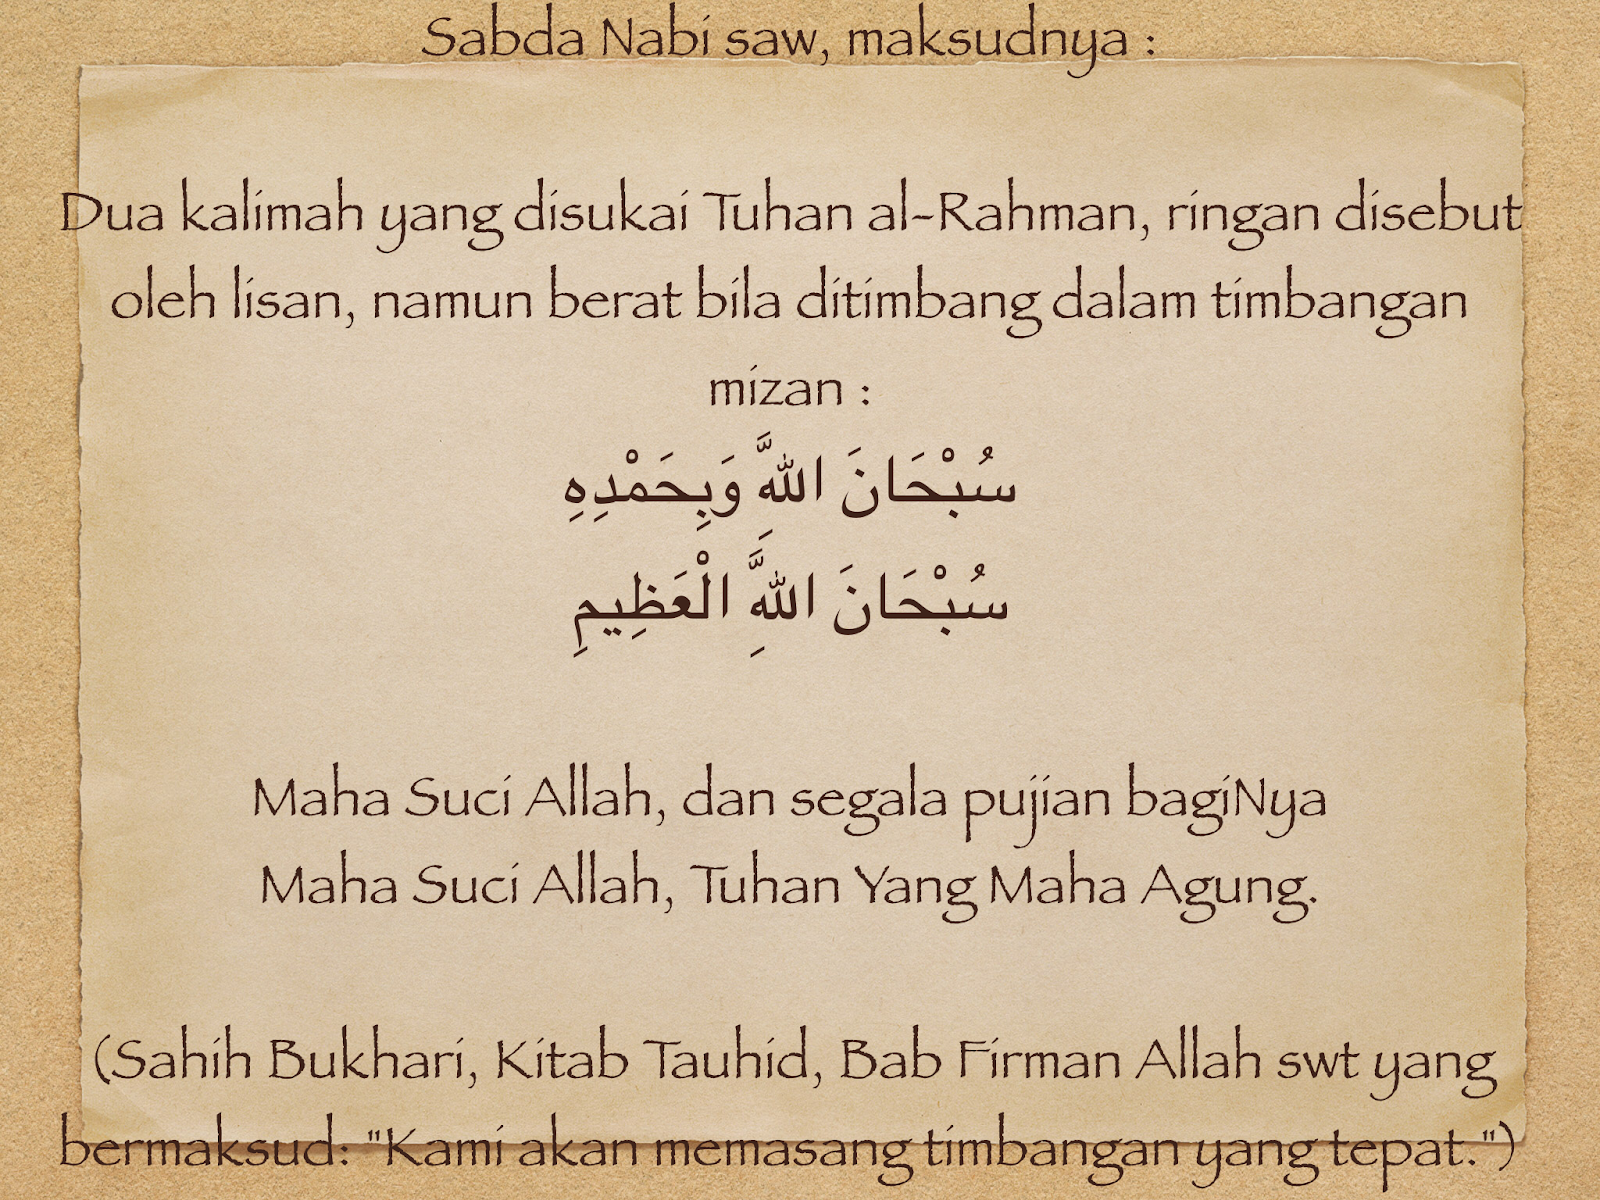 Sabda Nabi saw, maksudnya :
Dua kalimah yang disukai Tuhan al-Rahman, ringan disebut
oleh lisan, namun berat bila ditimbang dalam timbangan
mizan :
سُبْحَانَ اللهَِّ وَبِحَمْدِهِ
سُبْحَانَ اللهَِّ الْعَظِيمِ
Maha Suci Allah, dan segala pujian bagiNya
Maha Suci Allah, Tuhan Yang Maha Agung.
(Sahih Bukhari, Kitab Tauhid, Bab Firman Allah swt yang
bermaksud: "Kami akan memasang timbangan yang tepat.")